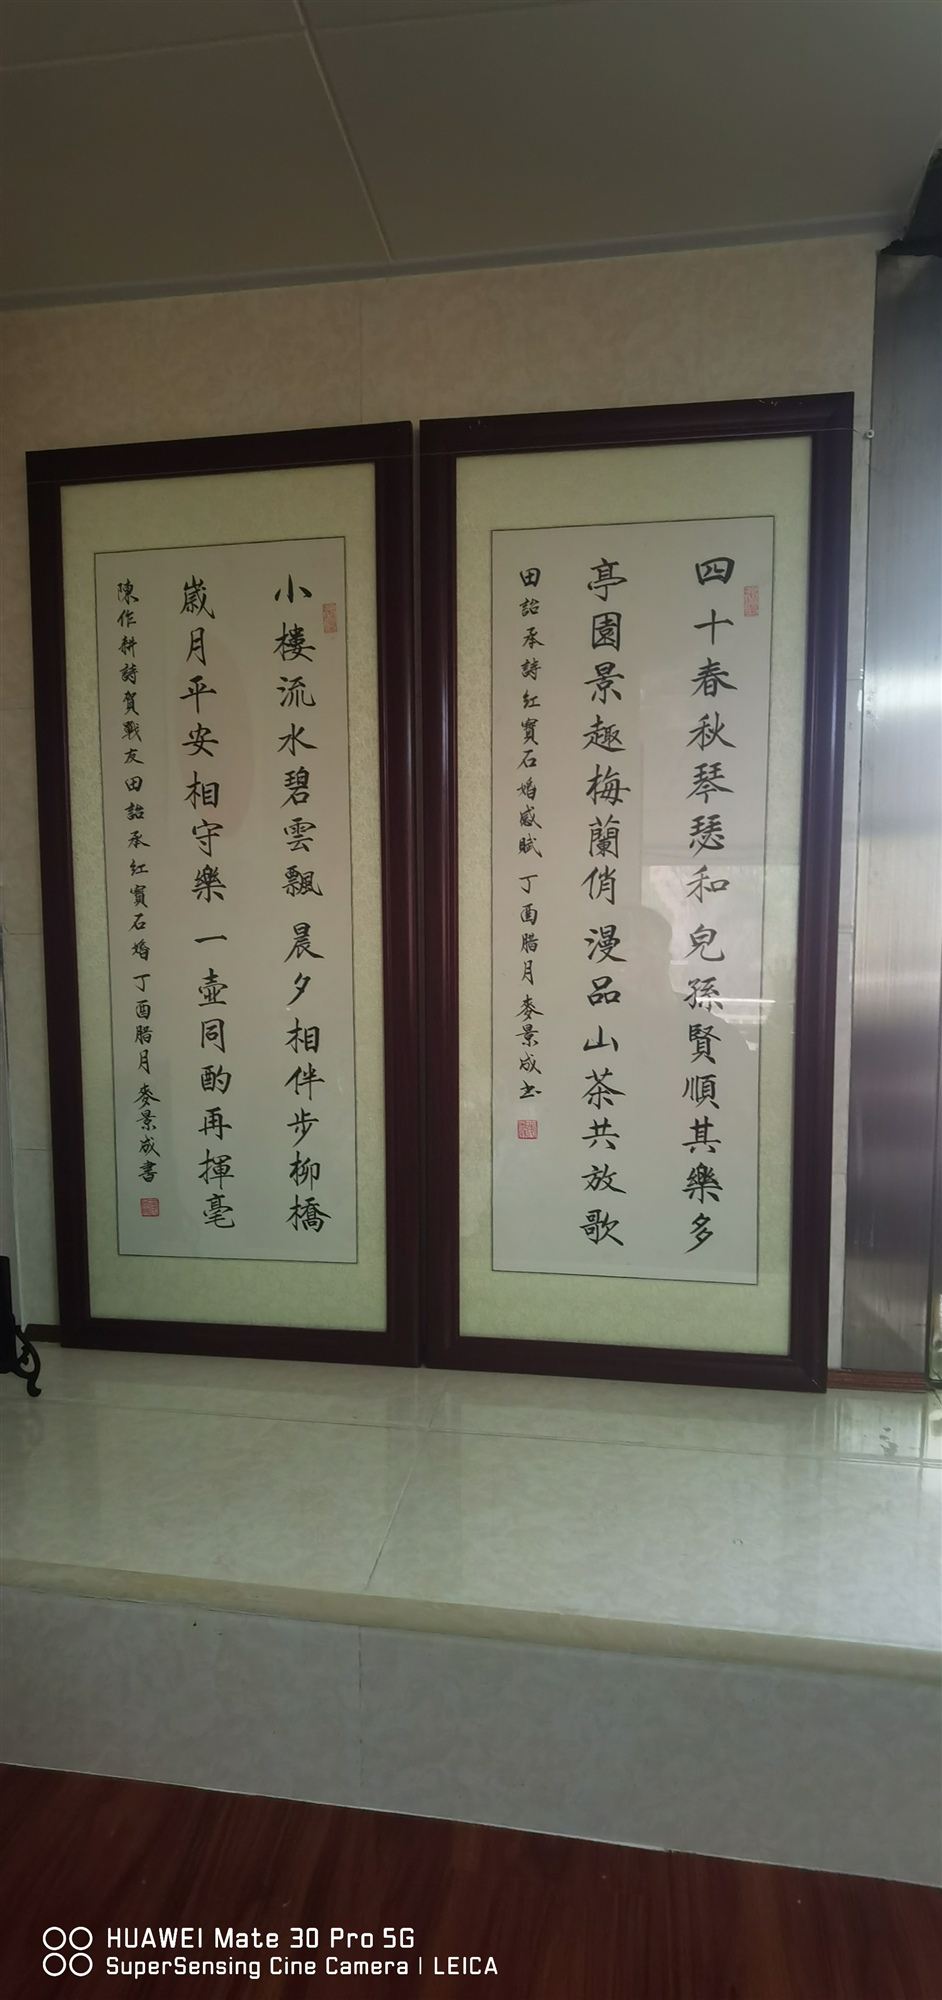 四十春秋琴瑟和兒孫賢順其樂多
亭園景趣梅蘭俏漫品山茶共放歌
田詒承詩紅寳石婚感賦 丁酉腊月 麥景成书
小樓流水碧雲飄晨夕相伴步柳橋
歲月平安相守樂一壺同酌再揮毫
陳作耕詩賀戰友田詒承紅寳石婚 丁酉腊月 麥景成書
HUAWEI Mate 30 Pro 5G
SuperSensing Cine Camera | LEICA